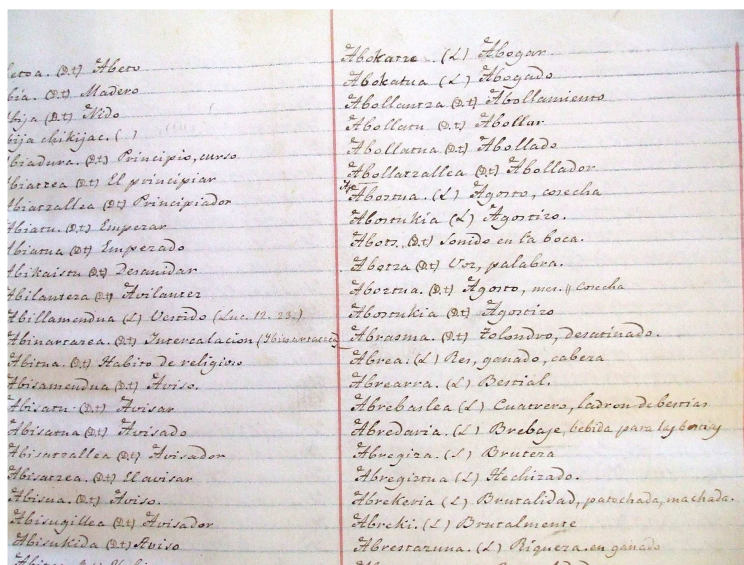 etoa. (D.t) Abeto
bia. (D.t) Madero
bija (D.t) Nido
bija chikijac. ( )
biadura. (D.t) Principio, curso
Abiatzea (D.t) El principiar
Abiatzallea (D.t) Principiador
Abiatu. (D.t) Empezar
Abiatua (D.t) Empezado
Abikaistu (D.t) Desanidar
Abilantera (D.t) Avilantez
Abillamendua (L) Vestido (Luc. 12. 23.)
Abinartarea. (D.t) Intercalacion
Abitua. (D.t) Habito de religioso
Abisamendua (D.t) Aviso.
Abisatu. (D.t) Avisar
Abisatua (D.t) Avisado
Abisatzallea (D.t) Avisador
Abisatzea. (D.t) El avisar
Abisua. (D.t) Aviso.
Abisugillea (D.t) Avisador
Abisukida (D.t) Aviso
Abokatze. (L) Abogar
Abokatua (L) Abogado
Abollantza (D.t) Abollamiento
Abollatu (D.t) Abollar
Abollatua (D.t) Abollado
Abollatzallea (D.t) Abollador
Abostua. (L) Agosto, cosecha
Abostukia (L) Agostizo.
Abots. (D.t) Sonido en la boca.
Abotza (D.t) Voz, palabra.
Aboztua. (D.t) Agosto, mes. || cosecha
Abostukia (D.t) Agostizo
Abrasma. (D.t) Tolondro, desatinado.
Abrea. (L) Res, ganado, cabeza
Abrearra. (L) Bestial.
Abrebaslea (L) Cuatrero, ladron de bestias
Abredaria. (L) Brebaje, bebida para las bestias
Abregiza. (L) Bruteza
Abregiztua (L) Hechizado.
Abrekeria (L) Brutalidad, patochada, machada.
Abreki. (L) Brutalmente
Abrestazuna. (L) Riqueza en ganado